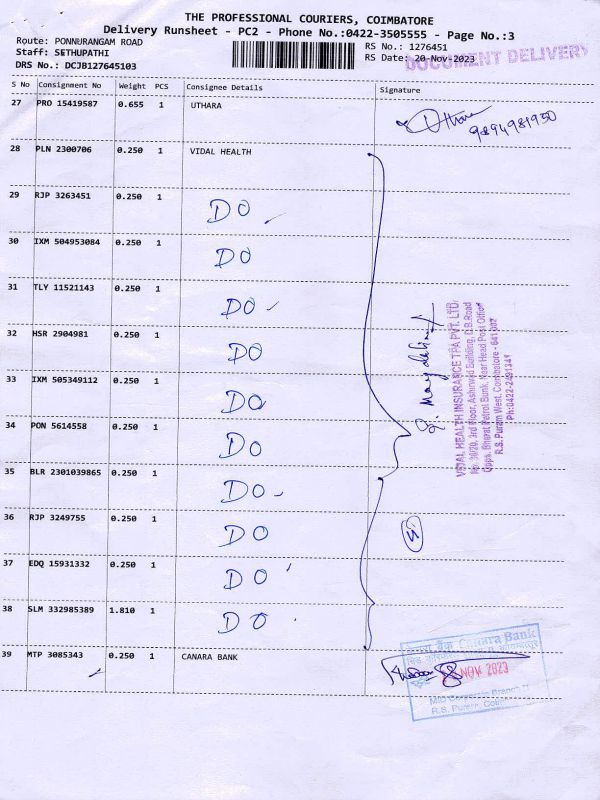 THE PROFESSIONAL COURIERS, COIMBATORE
Delivery Runsheet - PC2 - Phone No.:0422-3505555 - Page No.:3
Route: PONNURANGAM ROAD
RS No.: 1276451
Staff: SETHUPATHI
RS Date: 20-Nov-2023
DOCUMENT DELIVERY
DRS No.: DCJB127645103
S No Consignment No Weight PCS Consignee Details Signature
27 PRO 15419587 0.655 1 UTHARA
Uthara
9894981950
28 PLN 2300706 0.250 1 VIDAL HEALTH
29 RJP 3263451 0.250 1 DO
30 IXM 504953084 0.250 1 DO
31 TLY 11521143 0.250 1 DO
32 HSR 2904981 0.250 1 DO
33 IXM 505349112 0.250 1 DO
34 PON 5614558 0.250 1 DO
35 BLR 2301039865 0.250 1 DO
36 RJP 3249755 0.250 1 DO
37 EDQ 15931332 0.250 1 DO
38 SLM 332985389 1.810 1 DO
VIDAL HEALTH INSURANCE TPA PVT. LTD.
3rd Floor, Ashirwad Building, D.B.Road
Opps. Bharat Petrol Bunk, Near Head Post Office
R.S. Puram West, Coimbatore - 641 002
Ph:0422-2491341
39 MTP 3085343 0.250 1 CANARA BANK
Canara Bank
NOV 2023
Corporate Branch
R.S. Puram,